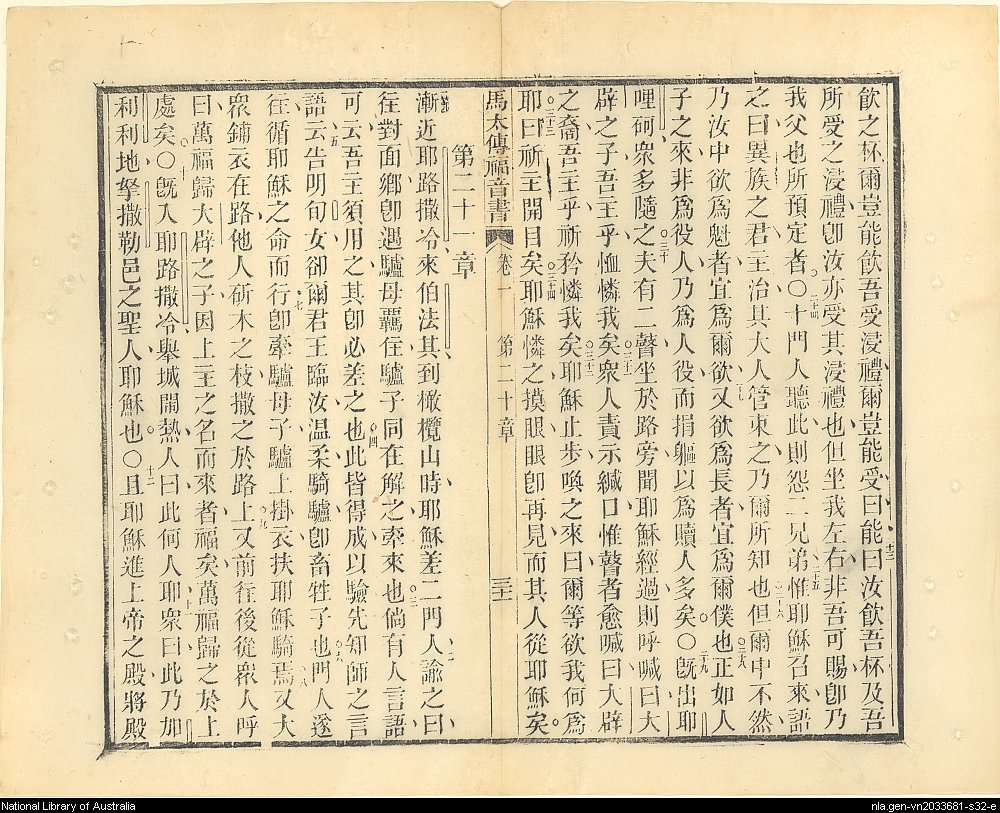 飲之杯爾豈能飲吾受浸禮爾豈能受曰能曰汝飲吾杯及吾
所受之浸禮卽汝亦受其浸禮也但坐我左右非吾可賜卽乃
我父也所預定者〇十門人聽此則怨二兄弟惟耶穌召來語
之曰異族之君王治其大人管束之乃爾所知也但爾中不然
乃汝中欲爲魁者宜爲爾欲又欲爲長者宜爲爾僕也正如人
子之來非爲役人乃爲人役而捐軀以爲贖人多矣〇旣出耶
哩𠰌衆多隨之夫有二瞽坐於路旁聞耶穌經過則呼喊曰大
辟之子吾主乎恤憐我矣衆人責示緘口惟瞽者愈喊曰大辟
之裔吾主乎祈矜憐我矣耶穌止步喚之來曰爾等欲我何爲
耶曰祈主開目矣耶穌憐之摸眼眼卽再見而其人從耶穌矣
馬太傳福音書 卷一 第二十章 三十一
第二十一章
漸近耶路撒冷來伯法其到橄欖山時耶穌差二門人諭之曰
往對面鄉卽遇驢母羈住驢子同在解之牽來也倘有人言語
可云吾主須用之其卽必差之也此皆得成以驗先知師之言
語云告明旬女卻爾君王臨汝温柔騎驢卽畜牲子也門人遂
往循耶穌之命而行卽牽驢母子驢上掛衣扶耶穌騎焉又大
衆鋪衣在路他人斫木之枝撒之於路上又前行後從衆人呼
曰萬福歸大辟之子因上主之名而來者福矣萬福歸之於上
處矣〇旣入耶路撒冷舉城鬧熱人曰此何人耶衆曰此乃加
利利地拏撒勒邑之聖人耶穌也〇且耶穌進上帝之殿將殿
National Library of Australia
nla.gen-vn2033681-s32-e